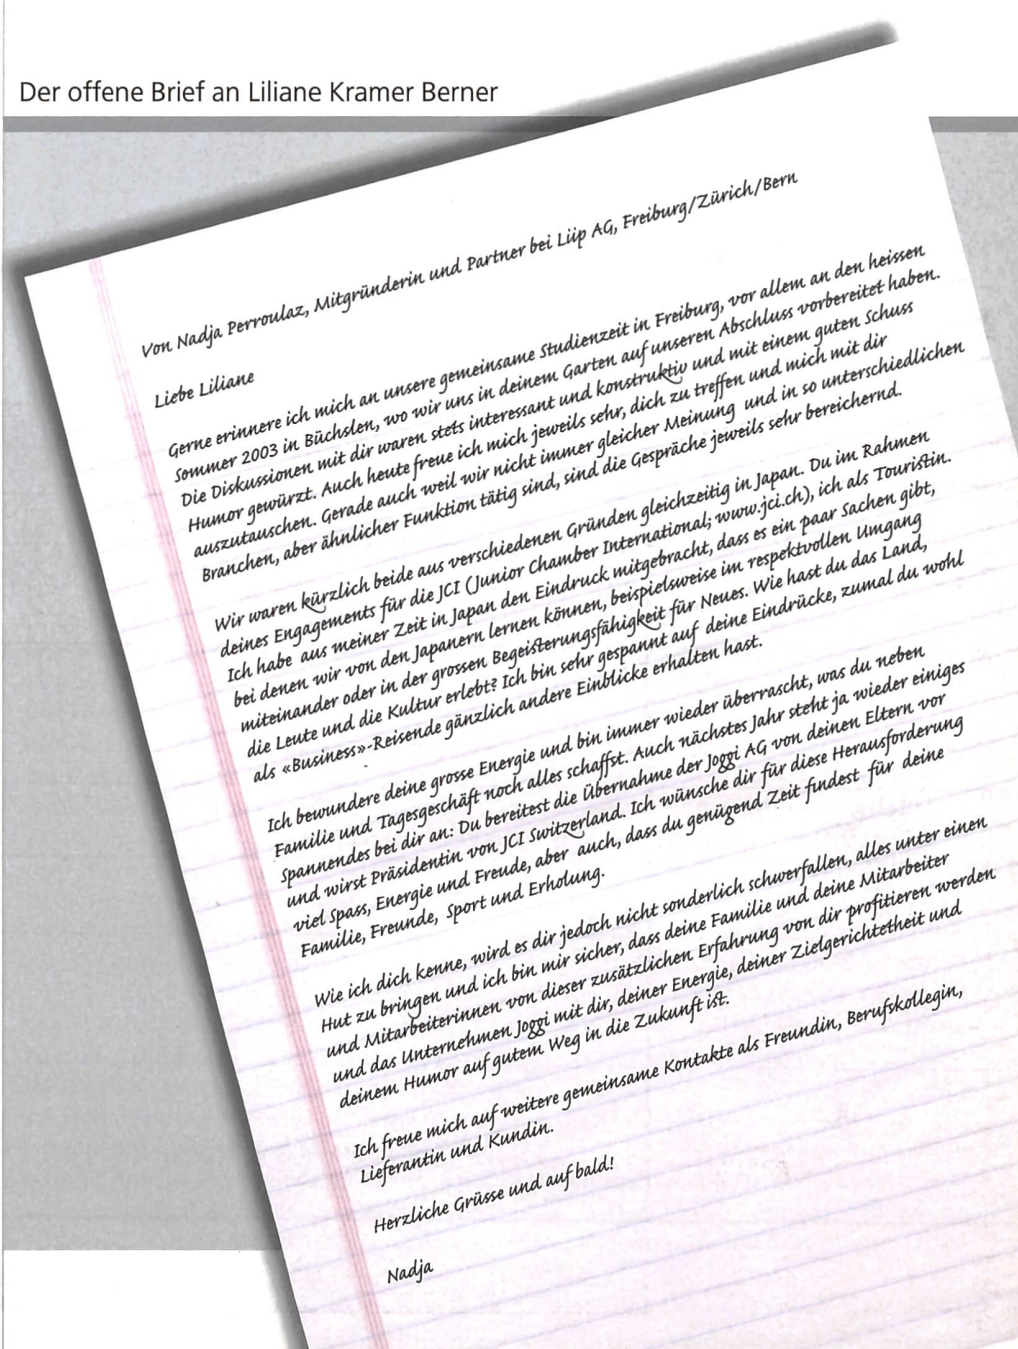 Der offene Brief an Liliane Kramer Berner
Von Nadja Perroulaz, Mitgründerin und Partner bei Liip AG, Freiburg/Zürich/Bern
Liebe Liliane
Gerne erinnere ich mich an unsere gemeinsame Studienzeit in Freiburg, vor allem an den heissen
Sommer 2003 in Büchslen, wo wir uns in deinem Garten auf unseren Abschluss vorbereitet haben.
Die Diskussionen mit dir waren stets interessant und konstruktiv und mit einem guten Schuss
Humor gewürzt. Auch heute freue ich mich jeweils sehr, dich zu treffen und mich mit dir
auszutauschen. Gerade auch weil wir nicht immer gleicher Meinung und in so unterschiedlichen
Branchen, aber ähnlicher Funktion tätig sind, sind die Gespräche jeweils sehr bereichernd.
Wir waren kürzlich beide aus verschiedenen Gründen gleichzeitig in Japan. Du im Rahmen
deines Engagements für die JCI (Junior Chamber International; www.jci.ch), ich als Touristin.
Ich habe aus meiner Zeit in Japan den Eindruck mitgebracht, dass es ein paar Sachen gibt,
bei denen wir von den Japanern lernen können, beispielsweise im respektvollen Umgang
miteinander oder in der grossen Begeisterungsfähigkeit für Neues. Wie hast du das Land,
die Leute und die Kultur erlebt? Ich bin sehr gespannt auf deine Eindrücke, zumal du wohl
als «Business»-Reisende gänzlich andere Einblicke erhalten hast.
Ich bewundere deine grosse Energie und bin immer wieder überrascht, was du neben
Familie und Tagesgeschäft noch alles schaffst. Auch nächstes Jahr steht ja wieder einiges
Spannendes bei dir an: Du bereitest die Übernahme der Joggi AG von deinen Eltern vor
und wirst Präsidentin von JCI Switzerland. Ich wünsche dir für diese Herausforderung
viel Spass, Energie und Freude, aber auch, dass du genügend Zeit findest für deine
Familie, Freunde, Sport und Erholung.
Wie ich dich kenne, wird es dir jedoch nicht sonderlich schwerfallen, alles unter einen
Hut zu bringen und ich bin mir sicher, dass deine Familie und deine Mitarbeiter
und Mitarbeiterinnen von dieser zusätzlichen Erfahrung von dir profitieren werden
und das Unternehmen Joggi mit dir, deiner Energie, deiner Zielgerichtetheit und
deinem Humor auf gutem Weg in die Zukunft ist.
Ich freue mich auf weitere gemeinsame Kontakte als Freundin, Berufskollegin,
Lieferantin und Kundin.
Herzliche Grüsse und auf bald!
Nadja